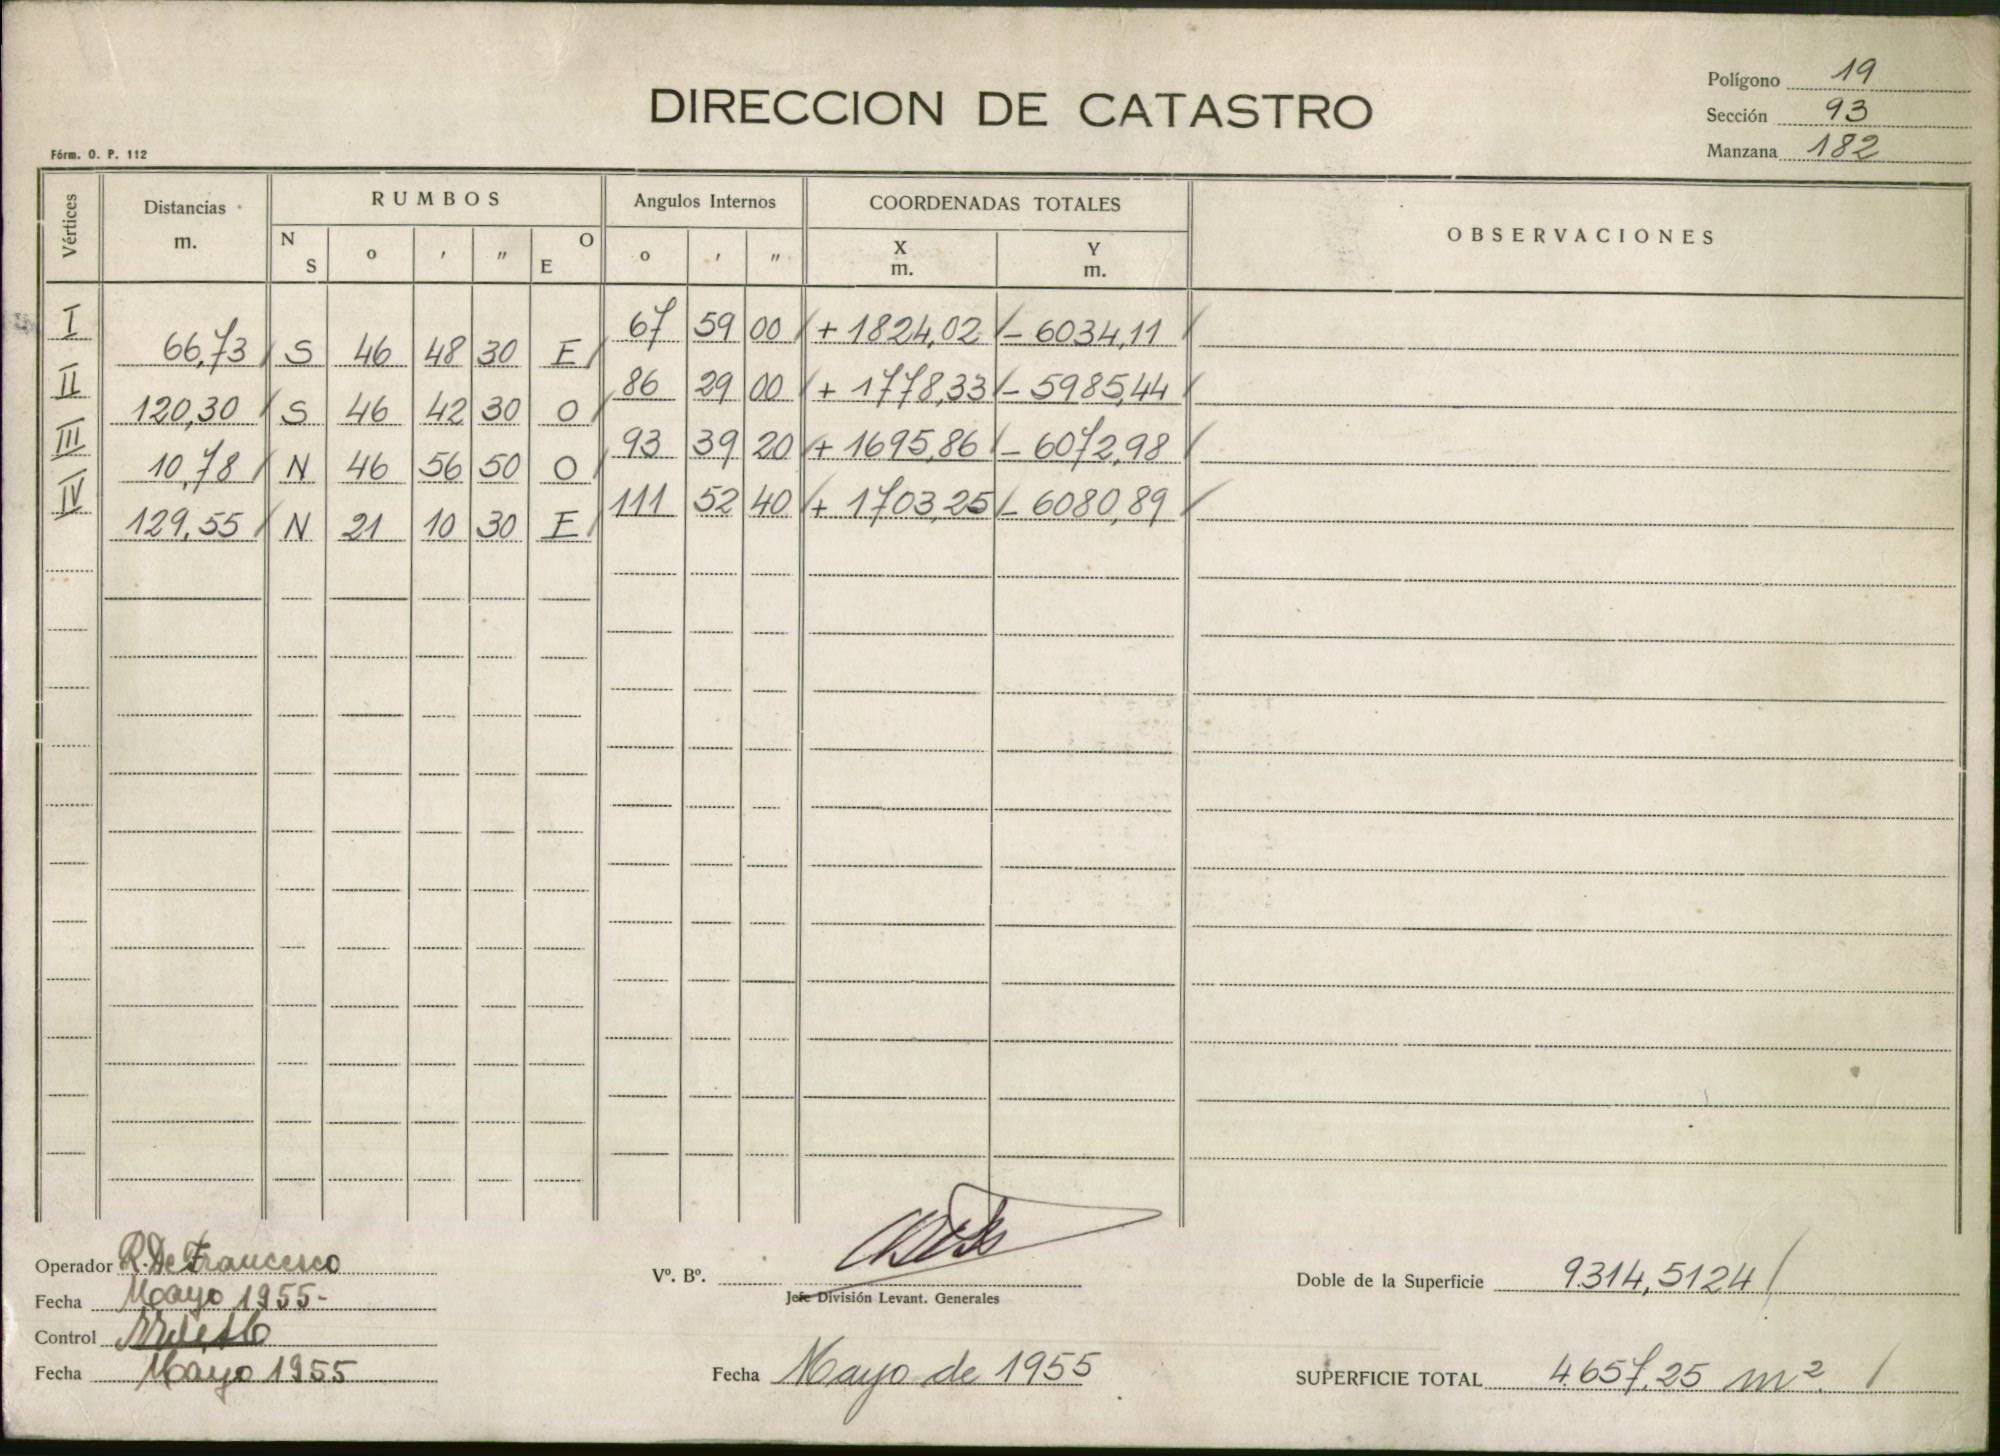 Polígono 19
DIRECCION DE CATASTRO
Sección 93
Manzana 182
Fórm. O. P. 112
Vértices Distancias m. RUMBOS N S o ' " O E Angulos Internos o ' " COORDENADAS TOTALES X m. Y m. OBSERVACIONES
I 67 59 00 + 1824,02 - 6034,11
66,73 S 46 48 30 E
II 86 29 00 + 1778,33 - 5985,44
120,30 S 46 42 30 O
III 93 39 20 + 1695,86 - 6072,98
10,78 N 46 56 50 O
IV 111 52 40 + 1703,25 - 6080,89
129,55 N 21 10 30 E
Operador R. De Francesco
Fecha Mayo 1955-
Control
Fecha Mayo 1955
Vº. Bº.
Jefe División Levant. Generales
Fecha Mayo de 1955
Doble de la Superficie 9314,5124
SUPERFICIE TOTAL 4657,25 m².